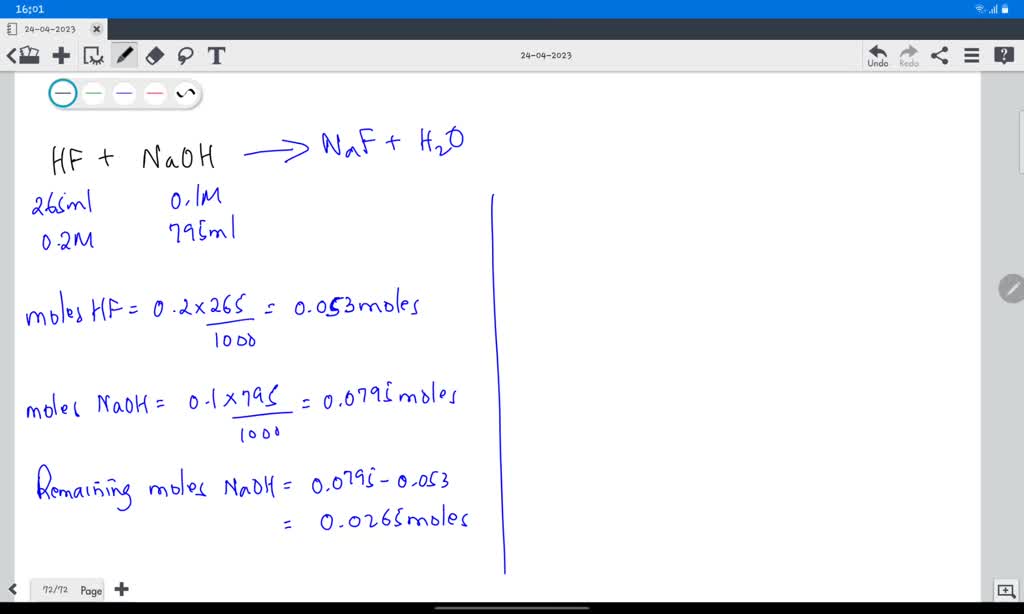 16:01
24-04-2023
T
24-04-2023
Undo
Redo
HF + NaOH → NaF + H2O
265ml 0.1M
0.2M 795ml
moles HF = 0.2 × 265 = 0.053 moles
1000
moles NaOH = 0.1 × 795 = 0.0795 moles
1000
Remaining moles NaOH = 0.0795 - 0.053
= 0.0265 moles
72/72 Page